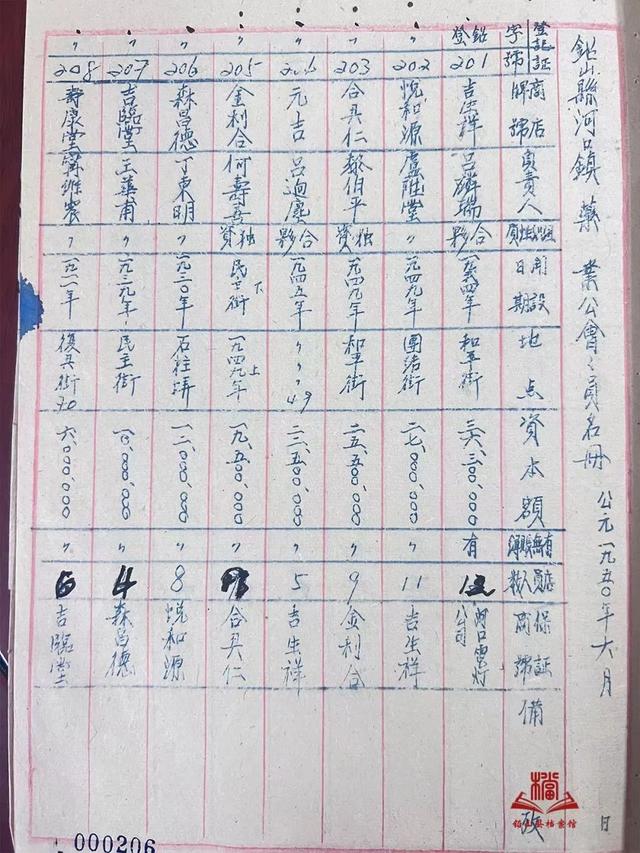 鉛山縣河口鎮藥業公會會員名冊 公元一九五〇年六月 日
登記証字號 商店牌號 負責人 組織性質 開設日期 地点 資本額 有無賬簿 店員人數 保証商號 備攷
鉛登 201 吉生祥 呂 瑞 合夥 一九四年 和平街 三六、三〇〇、〇〇〇 有 河口電灯公司
〃 202 悅和源 盧 堂 〃 一九四九年 團結街 二七、〇〇〇、〇〇〇 〃 11 吉生祥
〃 203 合具仁 黎伯平 独資 一九四九年 和平街 二五、五〇〇、〇〇〇 〃 9 金利合
〃 元吉 呂 合夥 一九四五年 〃 〃 〃 49 二二、五〇〇、〇〇〇 〃 5 吉生祥
〃 205 金利合 何壽 独資 民主街 下 一九四九年 上 一九、五〇〇、〇〇〇 〃 合具仁
〃 206 森昌德 丁東明 〃 一九三〇年 石柱 一二、〇〇〇、〇〇〇 〃 8 悅和源
〃 207 吉臨堂 王華甫 〃 一九二九年 民主街 〇、〇〇〇、〇〇〇 〃 4 森昌德
〃 208 壽康堂 〃 一九二一年 復具街 70 六、〇〇〇、〇〇〇 〃 6 吉臨堂
000206
檔
铅山县档案馆